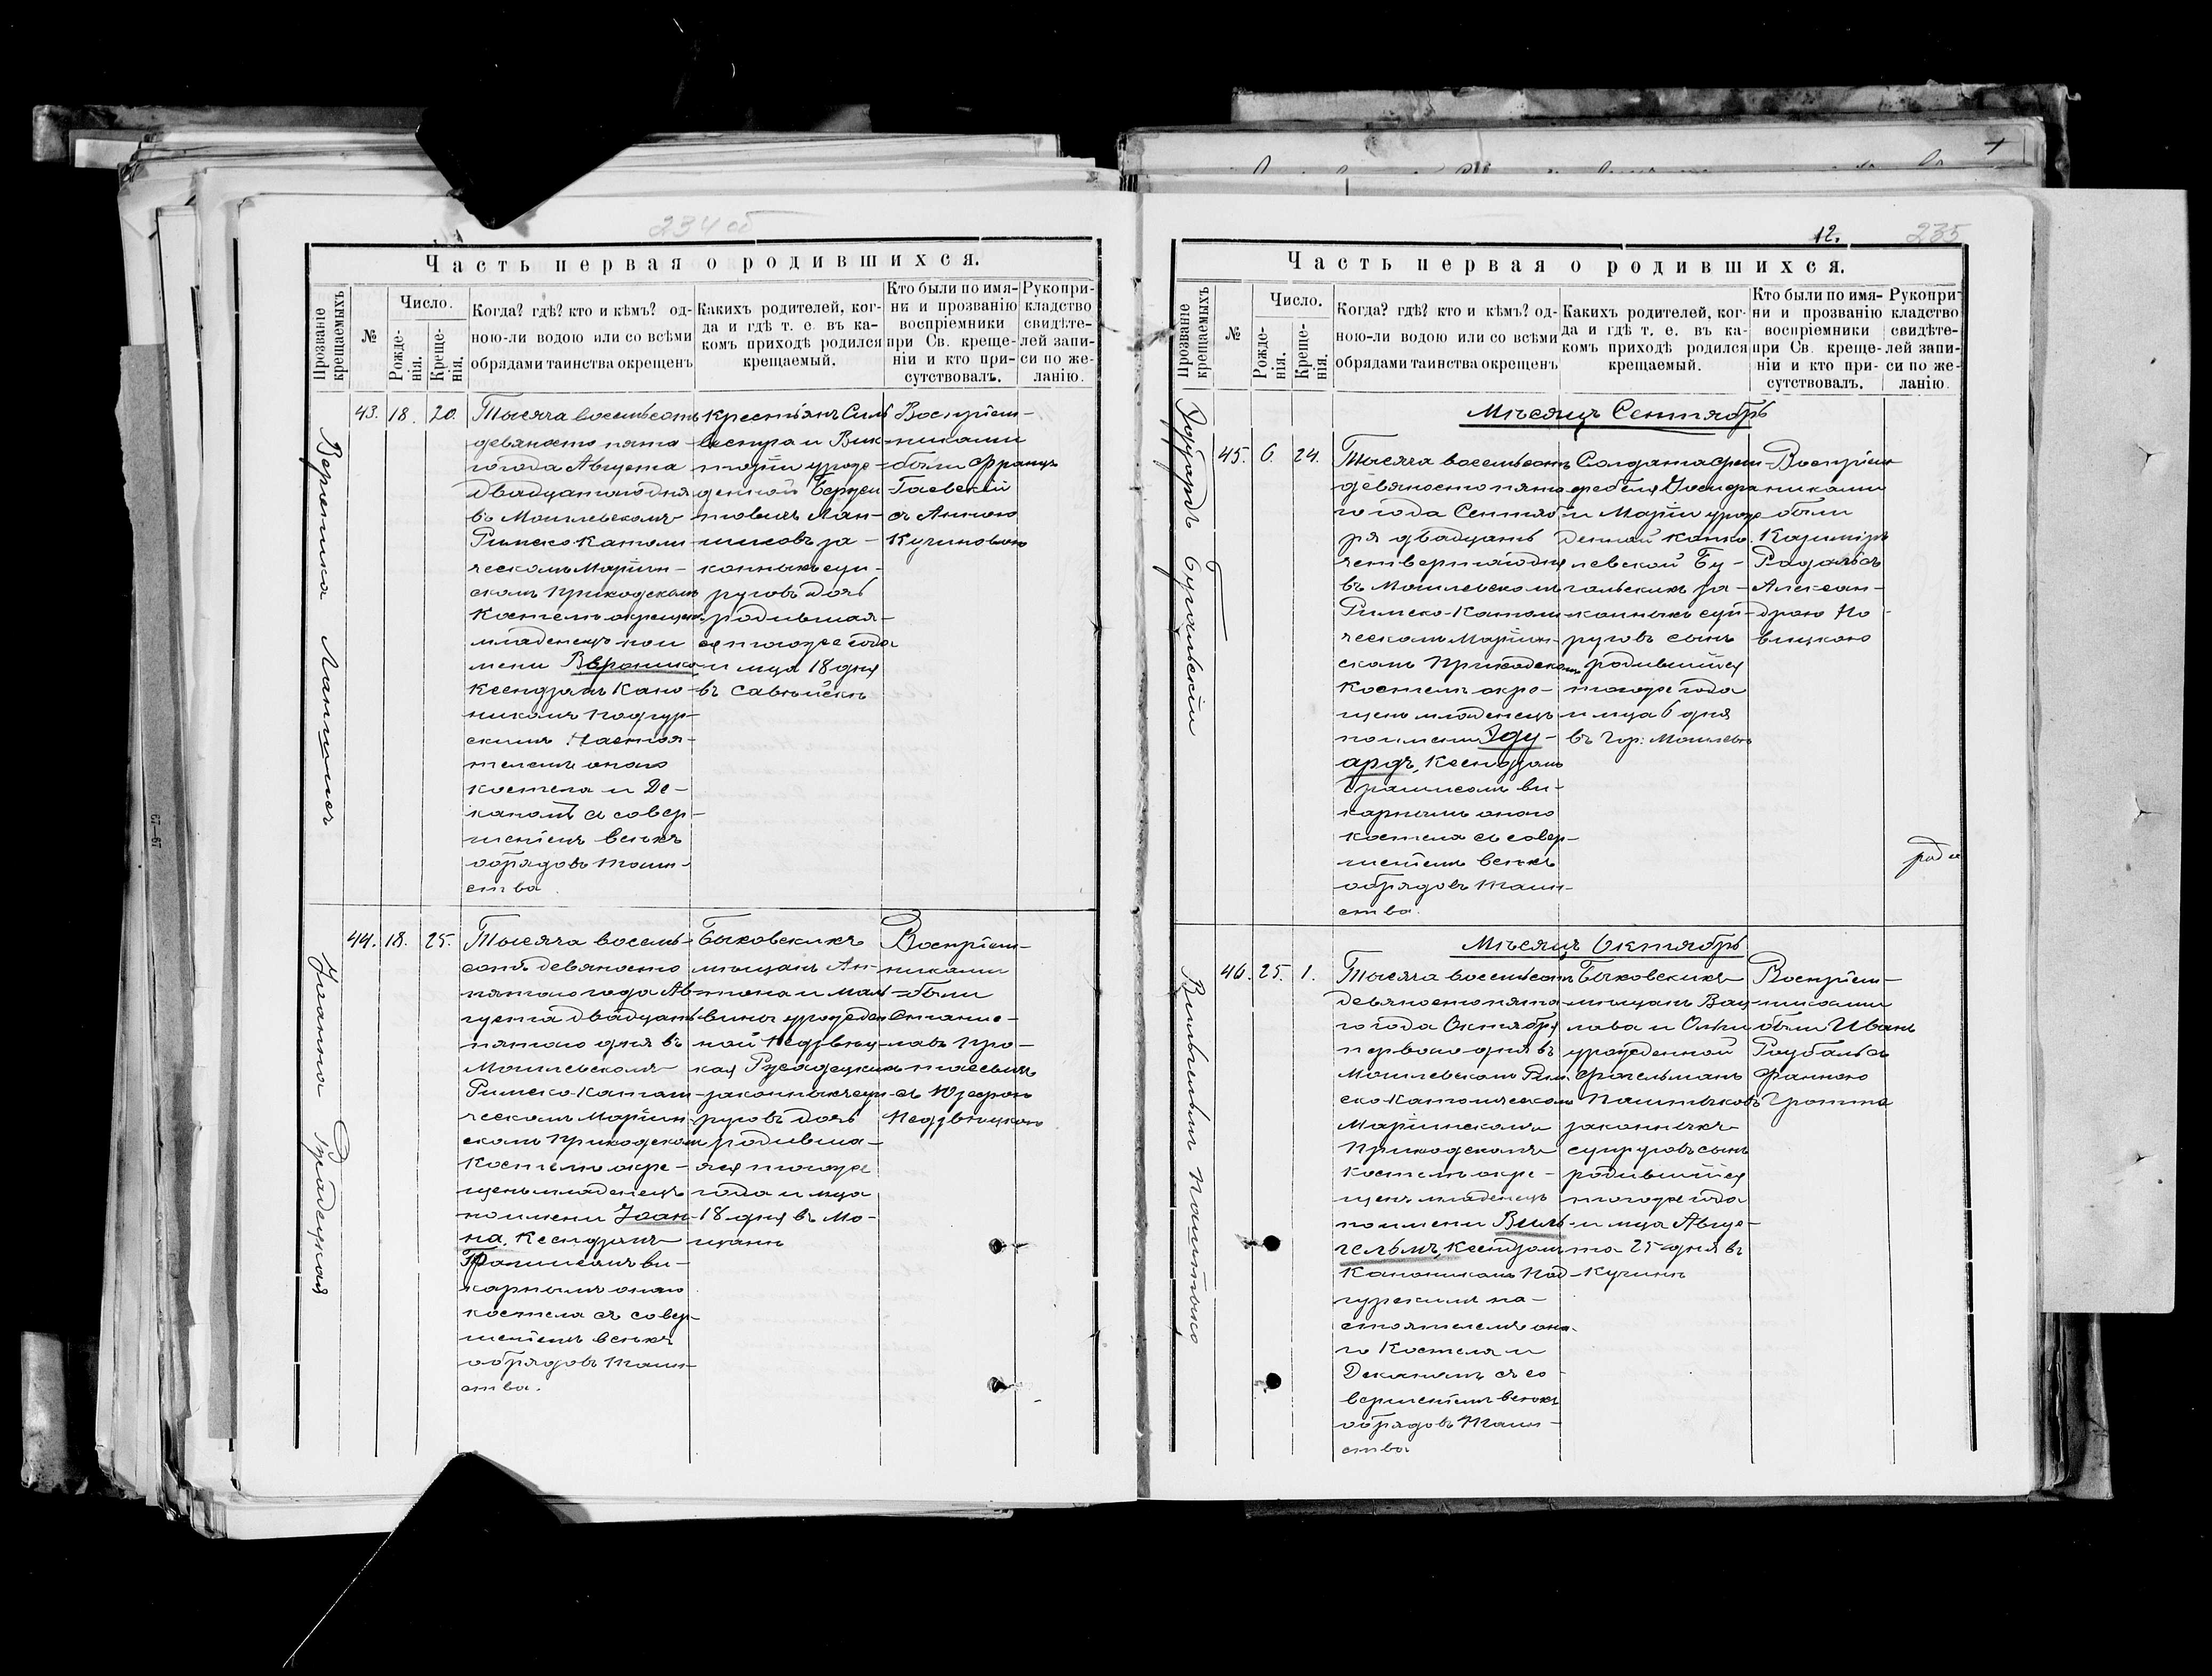 234 об
Часть первая о родившихся.
Прозваніе крещаемыхъ
№
Число.
Рожде-
нія.
Креще-
нія.
Когда? гдѣ? кто и кѣмъ? од-
ною-ли водою или со всѣми
обрядами таинства окрещенъ
Какихъ родителей, ког-
да и гдѣ т. е. въ ка-
комъ приходѣ родился
крещаемый.
Кто были по имя-
ни и прозванію
воспріемники
при Св. креще-
ніи и кто при-
сутствовалъ.
Рукопри-
кладство
свидѣте-
лей запи-
си по же-
ланію.
Вероника
43. 18. 20.
Тысяча восемьсотъ
девяносто пята-
го года Августа
двадцатаго дня
въ Могилевскомъ
Римско-Католи
ческомъ Маріин-
скомъ приходскомъ
костелѣ окрещенъ
младенецъ по и
мени Вероника
Ксендзомъ Кано-
никомъ Подгур-
скимъ Настоя-
телемъ онаго
костела и Де-
каномъ съ совер-
шеніемъ всѣхъ
обрядовъ таин-
ства.
Крестьянъ Силь
вестра и Вик-
торіи урож-
денной
законныхъ суп-
руговъ дочь
родившая-
ся тогоже года
и мца 18 дня
въ
Воспріем-
никами
были Францъ
Гаевскій
съ Анною
Кучиновою
Іоанна Русадецкая
44. 18. 25.
Тысяча восемь-
сотъ девяносто
пятаго года Ав-
густа двадцать
пятаго дня въ
Могилевскомъ
Римско-Католи
ческомъ Маріин
скомъ приходскомъ
костелѣ окре-
щенъ младенецъ
по имени Іоан-
на, Ксендзомъ
ви-
карнымъ онаго
костела съ совер-
шеніемъ всѣхъ
обрядовъ таин-
ства.
Быховскихъ
мѣщанъ Ан-
тона и Маль
вины урожден
ной Недзвец-
кая Русадецкихъ
законныхъ суп-
руговъ дочь
родивша-
яся тогоже
года и мца
18 дня въ Мо-
Воспріем-
никами
были
Станис-
лавъ
съ Юзефою
Недзвецкою
12.
235
Часть первая о родившихся.
Прозваніе крещаемыхъ
№
Число.
Рожде-
нія.
Креще-
нія.
Когда? гдѣ? кто и кѣмъ? од-
ною-ли водою или со всѣми
обрядами таинства окрещенъ
Какихъ родителей, ког-
да и гдѣ т. е. въ ка-
комъ приходѣ родился
крещаемый.
Кто были по имя-
ни и прозванію
воспріемники
при Св. креще-
ніи и кто при-
сутствовалъ.
Рукопри-
кладство
свидѣте-
лей запи-
си по же-
ланію.
Мѣсяцъ Сентябрь
Эдуардъ Бугальскій
45. 6. 24.
Тысяча восемьсотъ
девяносто пята
го года Сентяб
ря двадцать
четвертаго дня
въ Могилевскомъ
Римско-Католи
ческомъ Маріин-
скомъ приходскомъ
костелѣ окре-
щенъ младенецъ
по имени Эду-
ардъ, Ксендзомъ
ви-
карнымъ онаго
костела съ совер-
шеніемъ всѣхъ
обрядовъ таин-
ства.
Солдата
Іосифа
и Маріи урож
денной
Бу-
гальскихъ за-
конныхъ суп-
руговъ сынъ
родившійся
тогоже года
и мца 6 дня
въ гор: Могилевѣ
Воспріем
никами
были
Казимiръ
съ
Алексан-
дрою Но
вицкою
Мѣсяцъ Октябрь
Вильгельмъ Пашпыко
46. 25. 1.
Тысяча восемьсотъ
девяносто пята-
го года Октября
перваго дня въ
Могилевскомъ Рим
ско-Католическомъ
Маріинскомъ
приходскомъ
костелѣ окре-
щенъ младенецъ
по имени Виль-
гельмъ, Ксендзомъ
Каноникомъ Под-
гурскимъ на-
стоятелемъ она-
го Костела и
Деканомъ съ со
вершеніемъ всѣхъ
обрядовъ таин-
ства
Быховскихъ
мѣщанъ Вац-
лава и Ольги
урожденной
законныхъ
супруговъ сынъ
родившійся
тогоже года
и мца Авгус-
та 25 дня въ
Кучинѣ
Воспріем-
никами
были Иванъ
съ